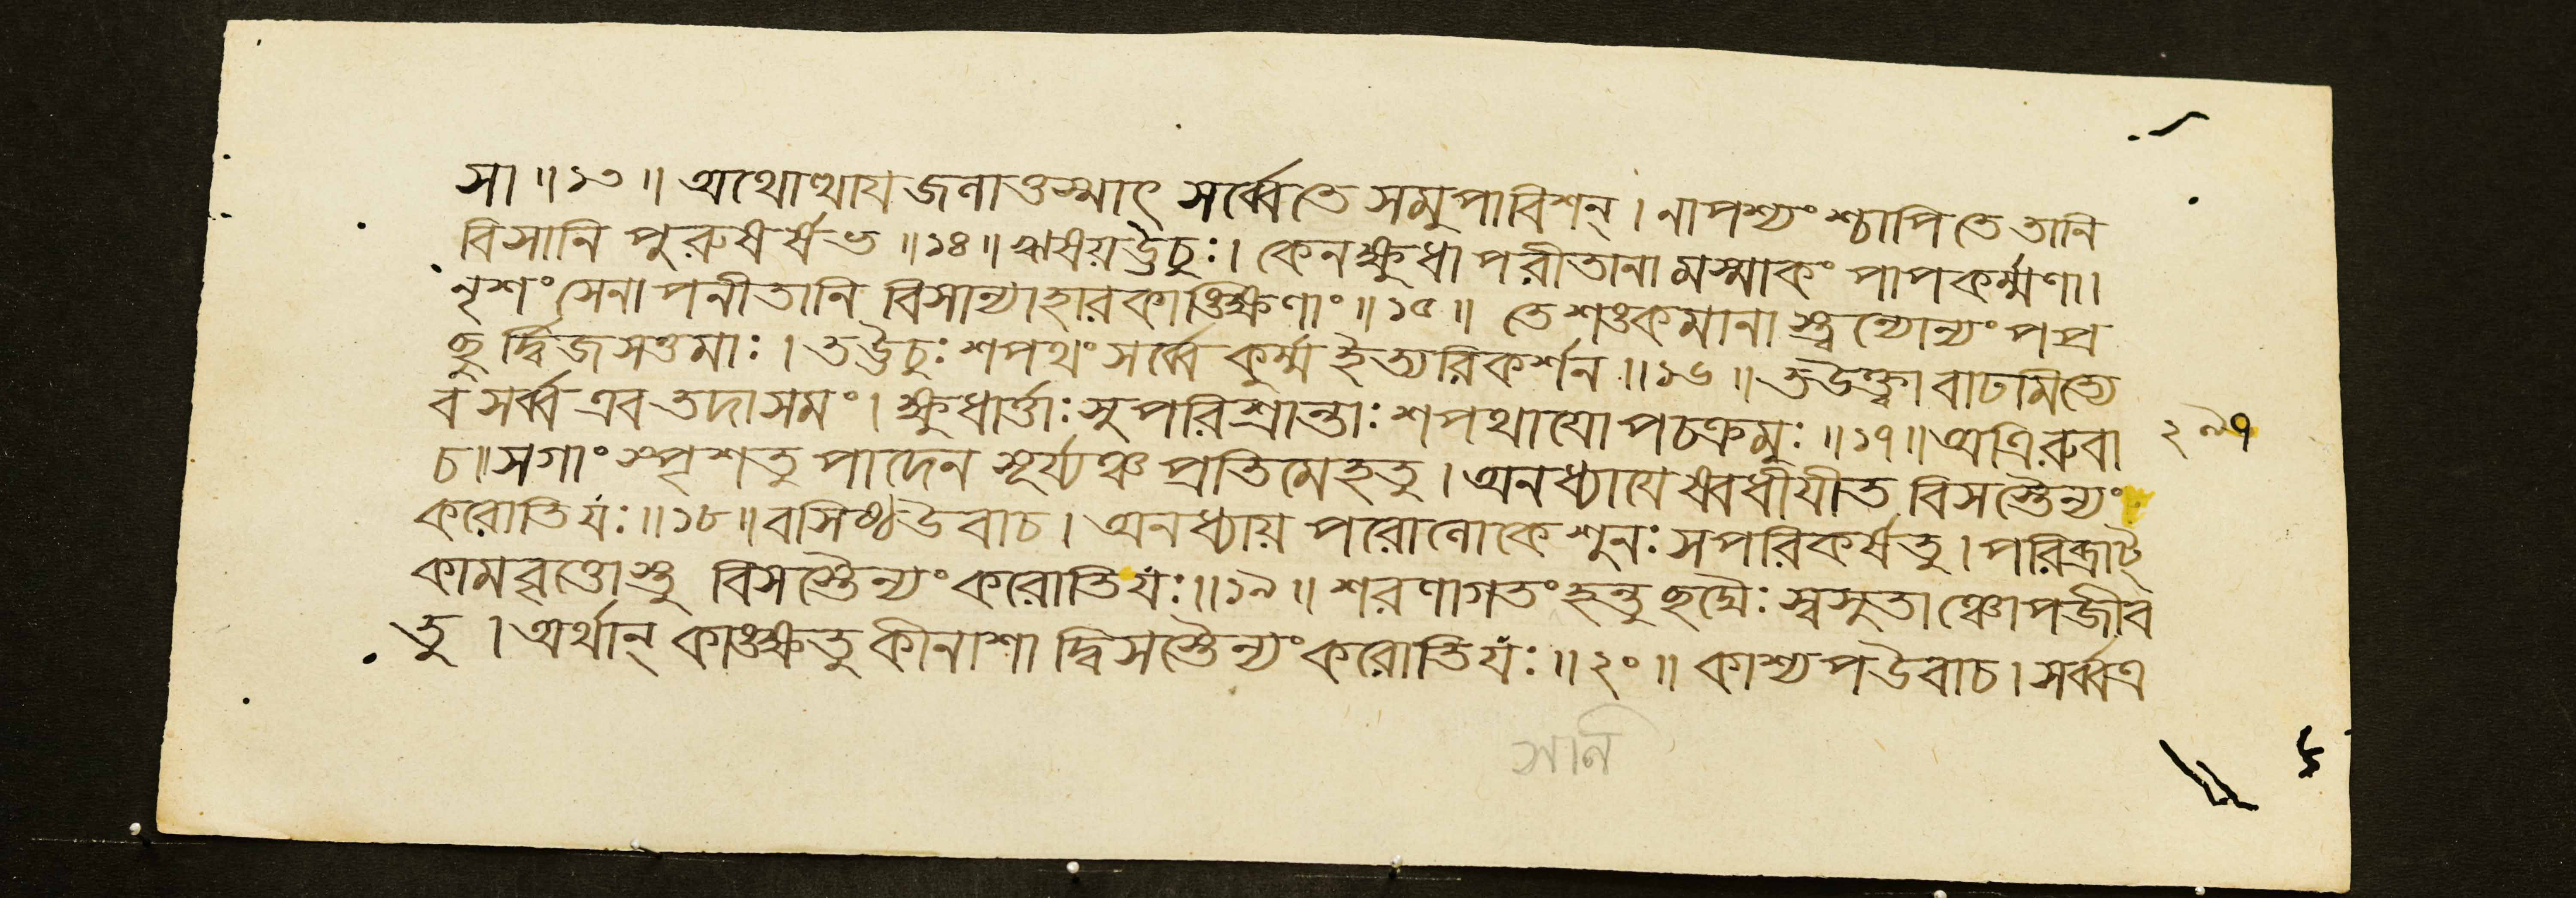 সা ॥ ১৩ ॥ অথোত্থায জনাওস্মাৎ সর্ব্বেতে সমুপাবিশন্ । নাপশ্যংশ্চাপি তে তানি
বিসানি পুরুষর্ষভ ॥ ১৪ ॥ ঋষয় ঊচুঃ । কেনক্ষুধাপরীতানামস্মাকং পাপকর্ম্মণা ।
নৃশংসেনাপনীতানি বিসান্যাহারকাঙিক্ষণাং ॥ ১৫ ॥ তে শঙকমানাস্ত্বন্যোন্যং পপ্র
ছুর্দ্বিজসত্তমাঃ । তঊচুঃ শপথং সর্ব্বে কুর্ম্ম ইত্যরিকর্শন ॥ ১৬ ॥ তউক্ত্বা বাঢমিত্যে
বং সর্ব্ব এব তদাসমং । ক্ষুধার্ত্তাঃ সুপরিশ্রান্তাঃ শপথাযোপচক্রমুঃ ॥ ১৭ ॥ অত্রিরুবা
চ ॥ সগাং স্পৃশতু পাদেন সূর্য্যঞ্চ প্রতিমেহতু । অনধ্যাযেষ্বধীযীত বিসস্তৈন্যং
করোতি যঃ ॥ ১৮ ॥ বসিষ্ঠ উবাচ । অনধ্যায় পরোণোকে শুনঃ সপরিকর্ষতু । পরিব্রাট্
কামবৃত্তোস্তু বিসস্তৈন্যং করোতি যঃ ॥ ১৯ ॥ শরণাগতং হন্তু ছদ্মৈঃ স্বসুতাঞ্চোপজীব
তু । অর্থান্ কাঙক্ষতু কীনাশাদ্বিসস্তৈন্যং করোতি যঃ ॥ ২০ ॥ কাশ্যপ উবাচ । সর্ব্বএ
২৯৭
সানি